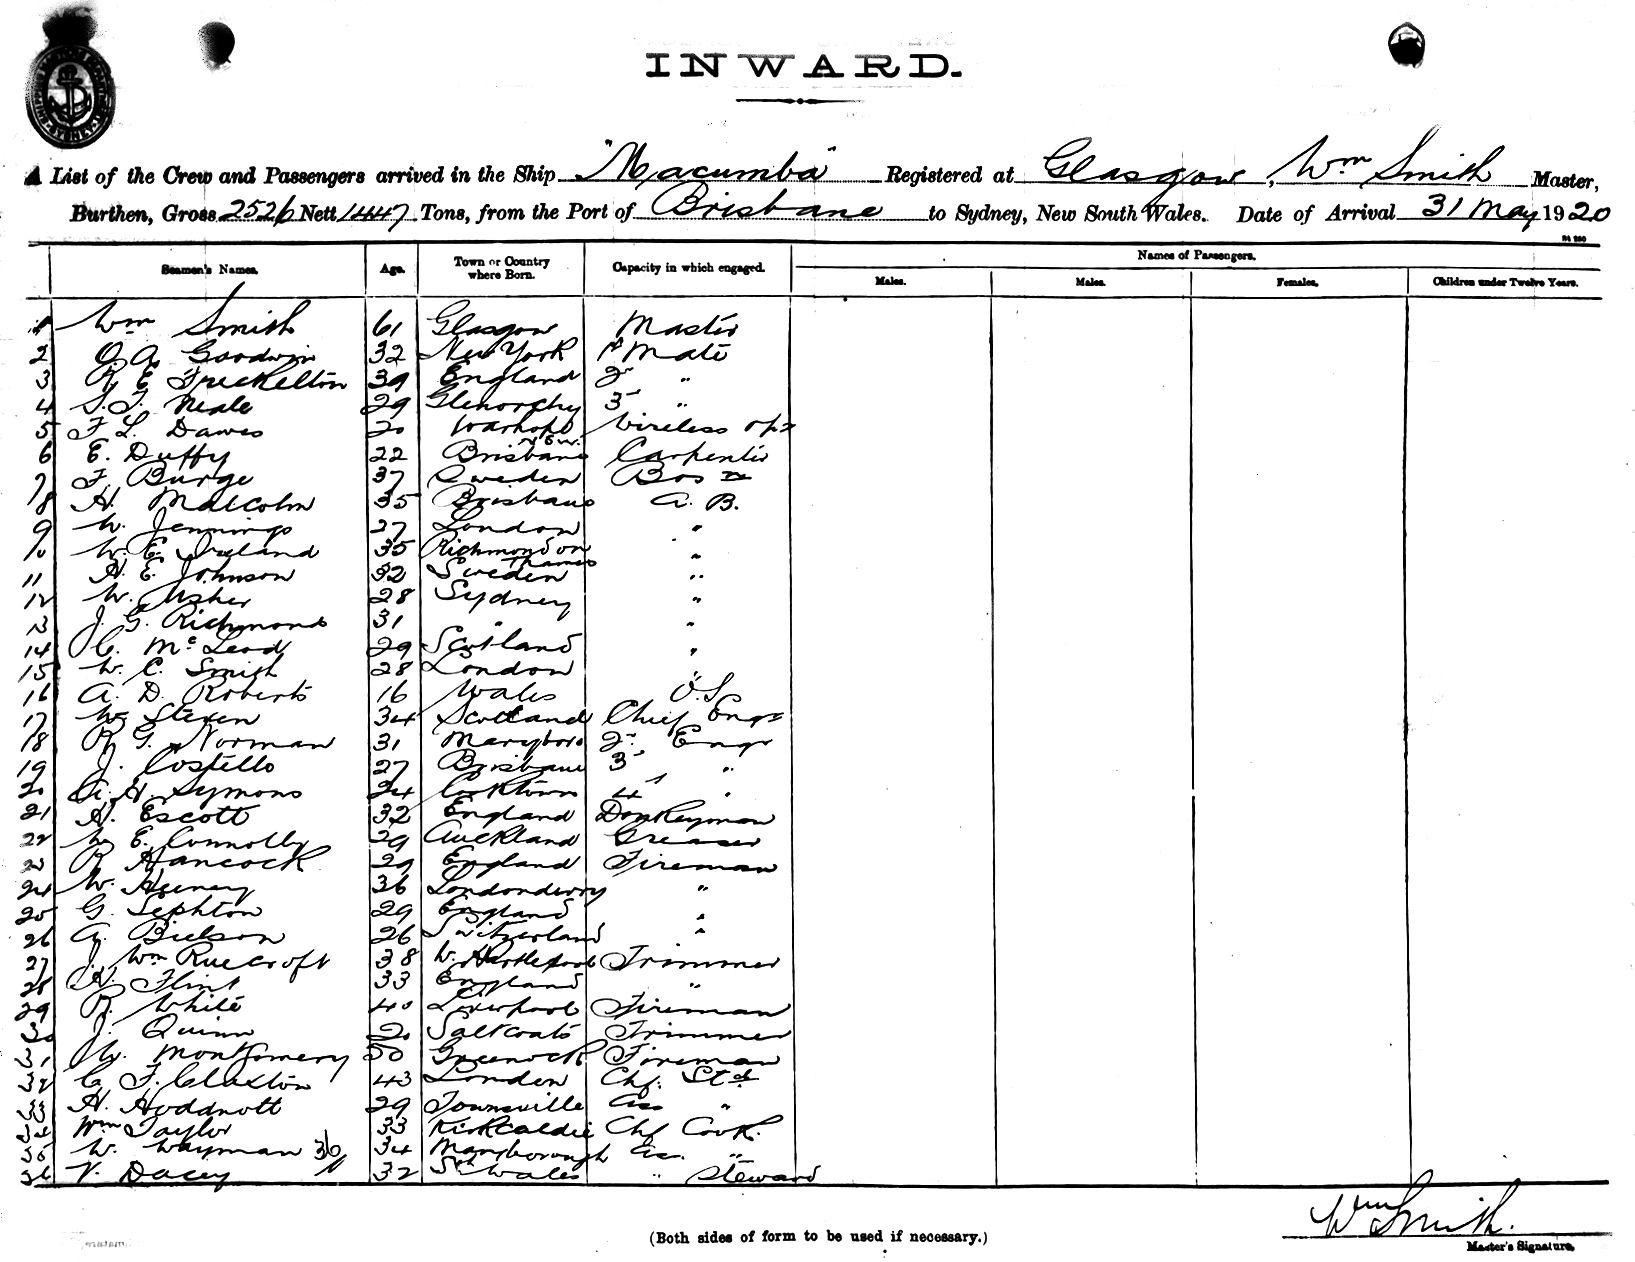 INWARD.
A List of the Crew and Passengers arrived in the Ship "Macumba" Registered at Glasgow, Wm Smith Master,
Burthen, Gross 2526 Nett 1447 Tons, from the Port of Brisbane to Sydney, New South Wales. Date of Arrival 31 May 1920
Names of Passengers.
Seamen's Names. Age. Town or Country where Born. Capacity in which engaged. Males. Males. Females. Children under Twelve Years.
1 Wm Smith 61 Glasgow Master
2 O. A. Goodwin 32 New York 1st Mate
3 R E Freckelton 39 England 2 "
4 S. T. Neale 29 Glenorchy 3 "
5 F L. Dawes 20 Wauchope N.S.W. Wireless opr
6 E. Duffy 22 Brisbane Carpenter
7 F. Burge 37 Sweden Bosn
8 H. Malcolm 35 Brisbane A. B.
9 W. Jennings 27 London "
10 W. E. Ireland 35 Richmond on Thames "
11 H. E. Johnson 32 Sweden "
12 W. Usher 28 Sydney "
13 J. G. Richmond 31 " "
14 C. McLeod 29 Scotland "
15 W. C. Smith 28 London "
16 A. D. Roberts 16 Wales O.S.
17 W Steven 34 Scotland Chief Engr
18 R G. Norman 31 Maryboro 2 Engr
19 J. Costello 27 Brisbane 3 "
20 A. H. Symons 24 Cooktown 4 "
21 H. Escott 32 England Donkeyman
22 W E. Connolly 29 Auckland Greaser
23 R Hancock 29 England Fireman
24 W. Heeney 36 Londonderry "
25 G. Sephton 29 England "
26 A. Bielson 26 Switzerland "
27 J. Wm Ruecroft 38 W. Hartlepool Trimmer
28 H. Flint 33 England "
29 R. White 40 Liverpool Fireman
30 J. Quinn 20 Saltcoats Trimmer
31 W. Montgomery 50 Greenock Fireman
32 C. F. Claxton 43 London Chf. Std
33 H. Hoddnott 29 Townsville Ass "
34 Wm Taylor 33 Kirkcaldie Chf Cook.
35 W. Wayman 34 Maryborough Ass. "
36 V. Dacey 32 S. Wales " Steward
36
Wm Smith.
Master's Signature.
(Both sides of form to be used if necessary.)